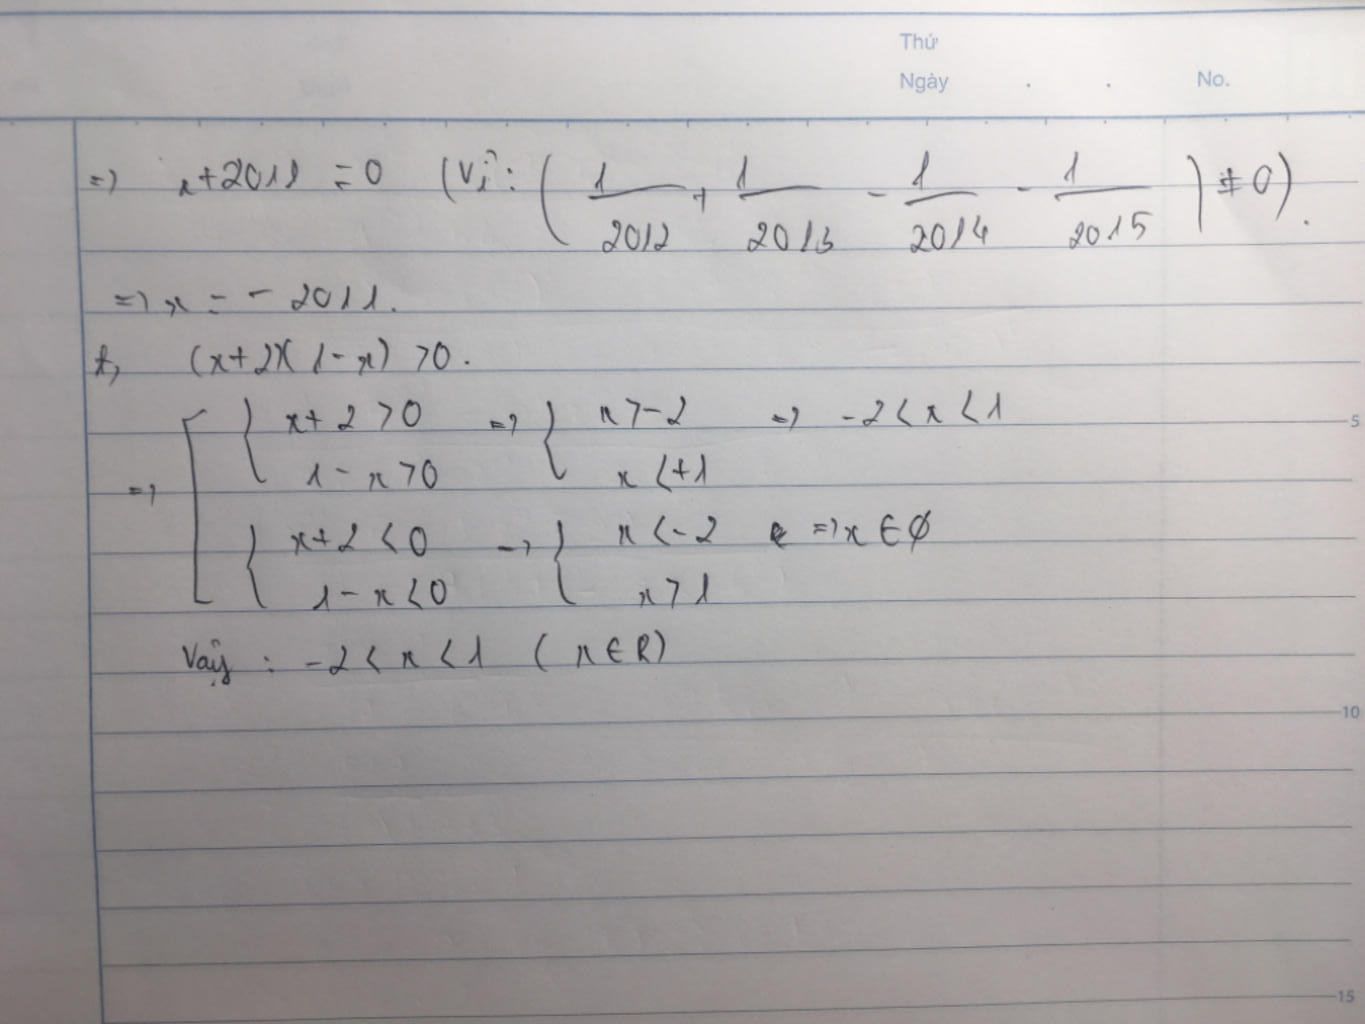 Thứ
Ngày . . No.
=> x+2011 = 0 (Vì: (1/2012 + 1/2013 - 1/2014 - 1/2015) ≠ 0).
=> x = - 2011.
f, (x+2)(1-x) >0.
x+2 >0 => x>-2 => -2<x<1
5
=> 1-x>0 x<+1
x+2<0 => x<-2 => x∈∅
1-x<0 x>1
Vậy : -2<x<1 (x∈R)
10
15